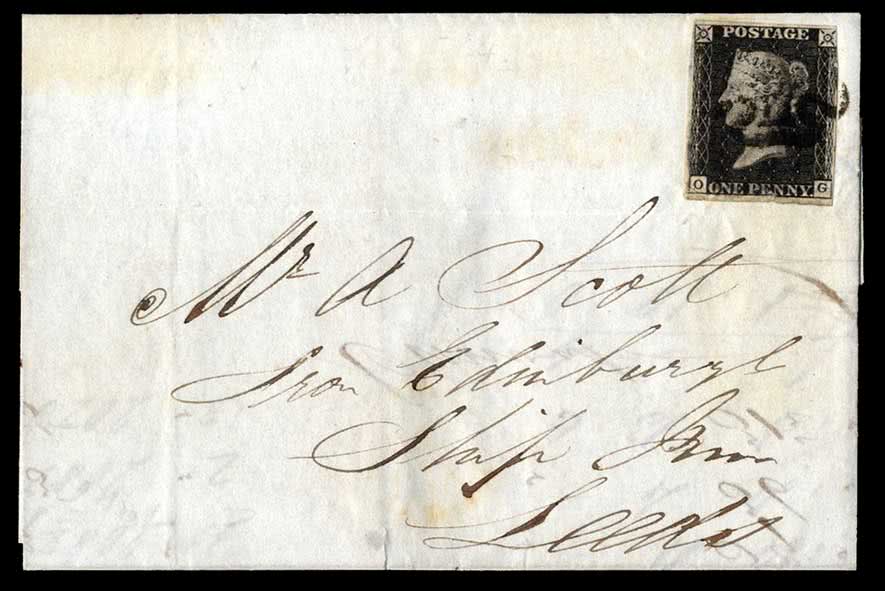 POSTAGE
O ONE PENNY. G
Mr A Scott
from Edinburgh
Ship Inn
Leeds